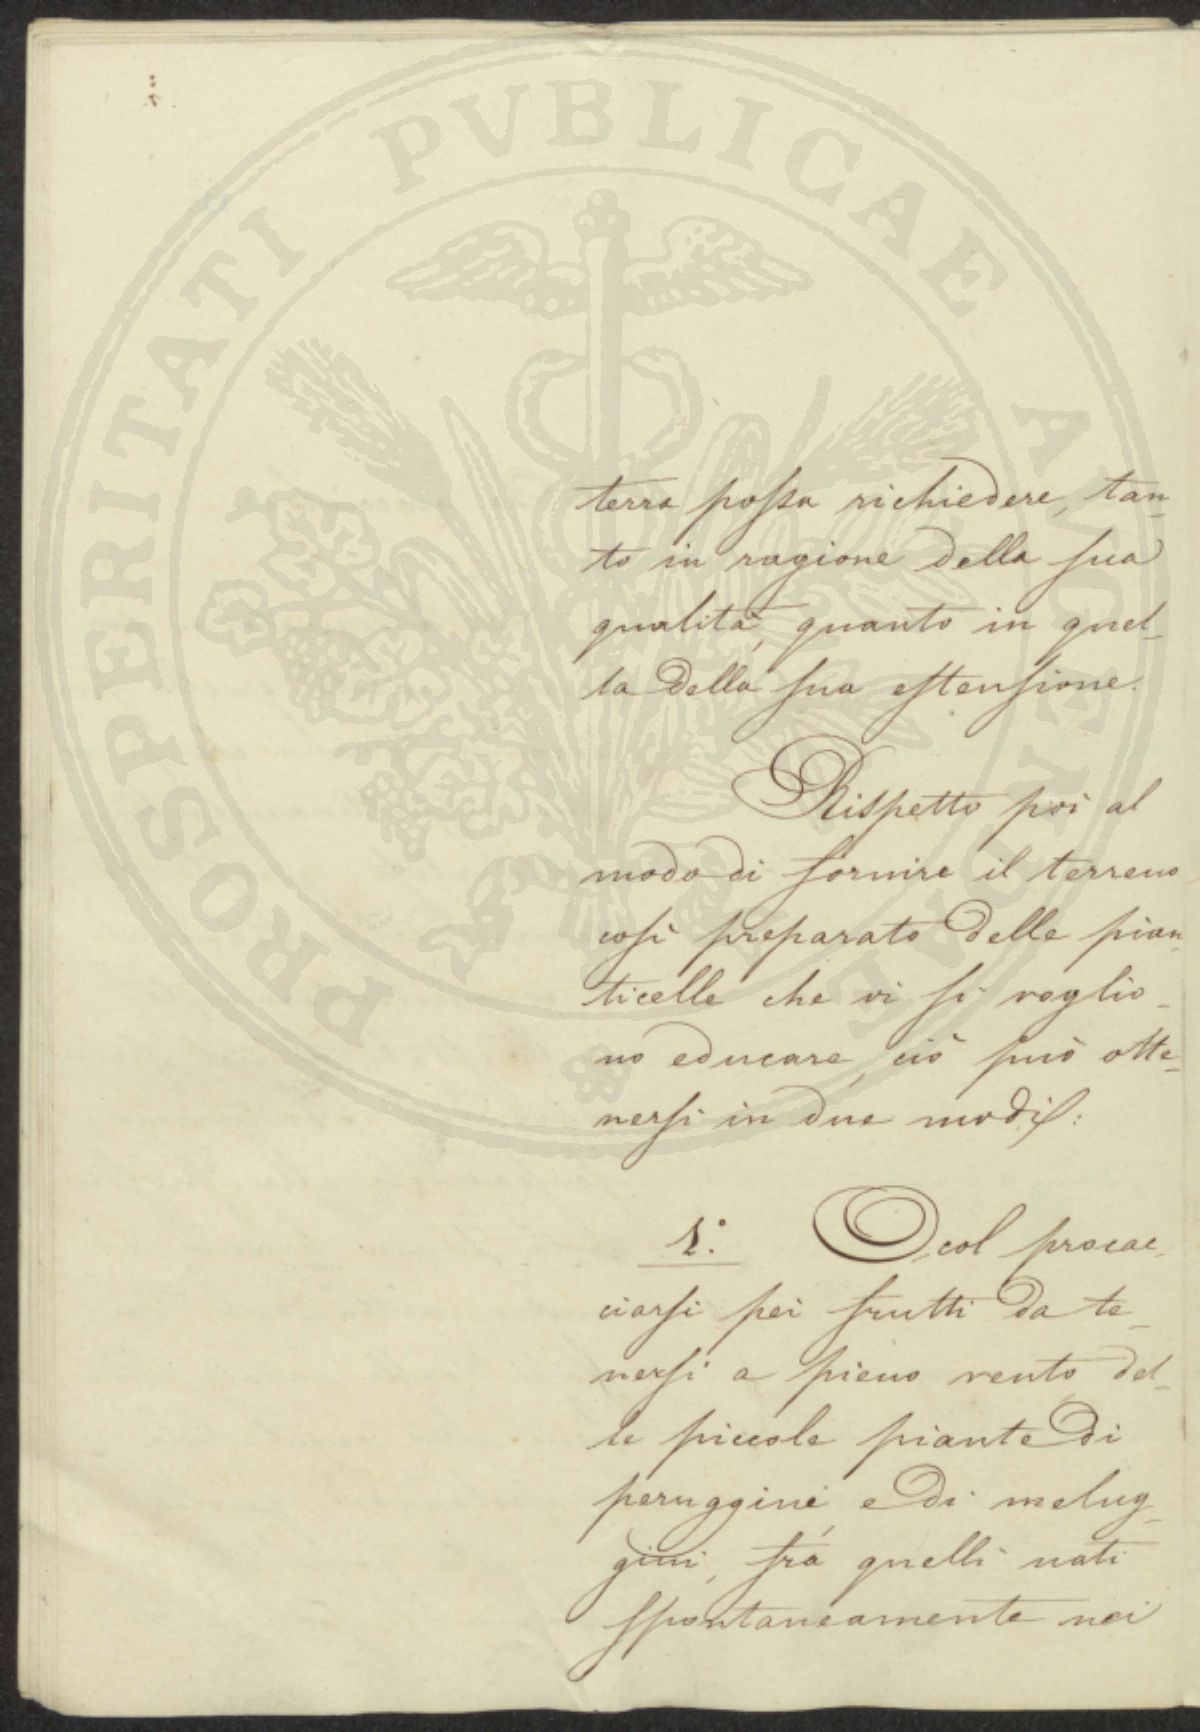 PROSPERITATI PVBLICAE AVGENDAE
terra possa richiedere, tan-
to in ragione della sua
qualità, quanto in quel-
la della sua estensione.
Rispetto poi al
modo di fornire il terreno
così preparato delle pian-
ticelle che vi si voglio-
no educare, ciò può otte-
nersi in due modi:
1.° O col procac-
ciarsi pei frutti da te-
nersi a pieno vento, del-
le piccole piante di
peruggini, e di melug-
gini, frà quelli nati
spontaneamente nei